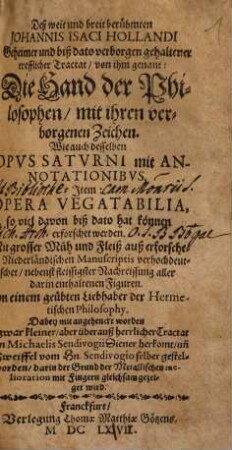 Deß weit und breit berühmten
JOHANNIS ISACI HOLLANDI
Geheimer und biß dato verborgen gehaltener
trefflicher Tractat / von ihm genant:
Die Hand der Phi-
losophen / mit ihren ver-
borgenen Zeichen.
Wie auch desselben
OPUS SATURNI mit AN-
NOTATIONIBUS,
Item
OPERA VEGATABILIA,
so viel davon biß dato hat können
erforschet werden.
Mit grosser Müh und Fleiß auß erforschet
Niederländischen Manuscriptis verhochdeut-
schet / nebenst fleissigster Nachreissung aller
darin enthaltenen Figuren
Von einem geübten Liebhaber der Herme-
tischen Philosophy.
Dabey mit angehenckt worden
zwar kleiner / aber überauß herrlicher Tractat
Michaelis Sendivogii Diener herkomt / uñ
Zweiffel vom Hn. Sendivogio selber gestel-
worden / darin der Grund der Metallischen me-
lioration mit Fingern gleichsam gezei-
get wird.
Franckfurt /
Verlegung Thomæ Matthiæ Götzens.
M DC LXVII.